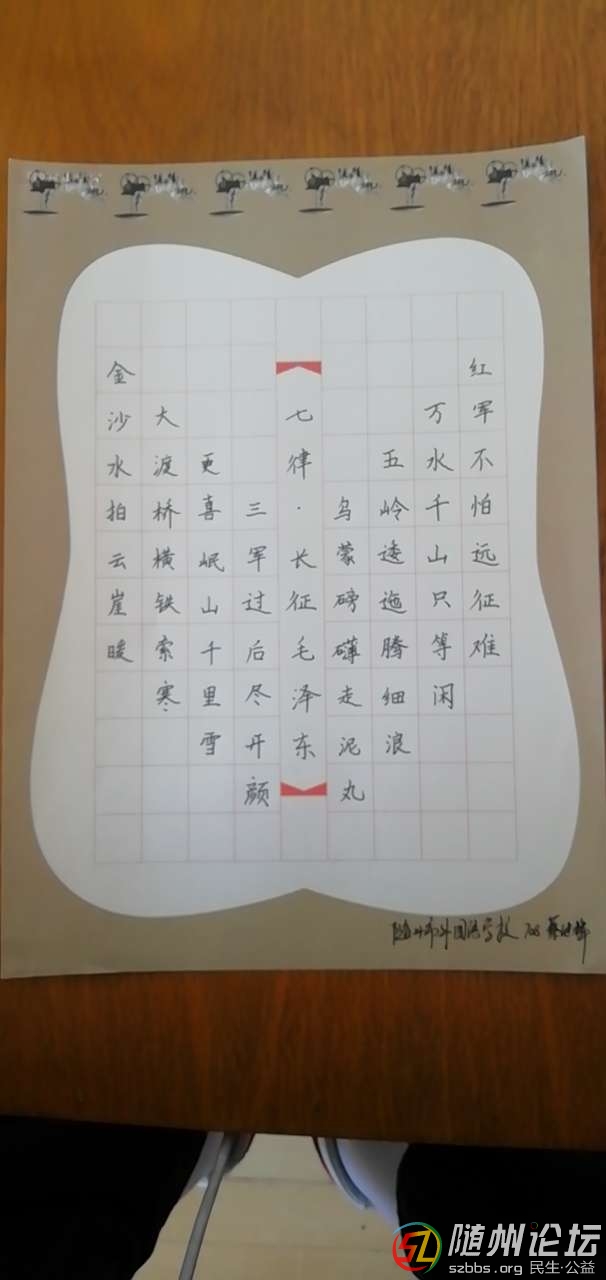 七律·长征毛泽东
红军不怕远征难
万水千山只等闲
五岭逶迤腾细浪
乌蒙磅礴走泥丸
金沙水拍云崖暖
大渡桥横铁索寒
更喜岷山千里雪
三军过后尽开颜
随州市外国语学校 708
随州论坛
szbbs.org 民生·公益